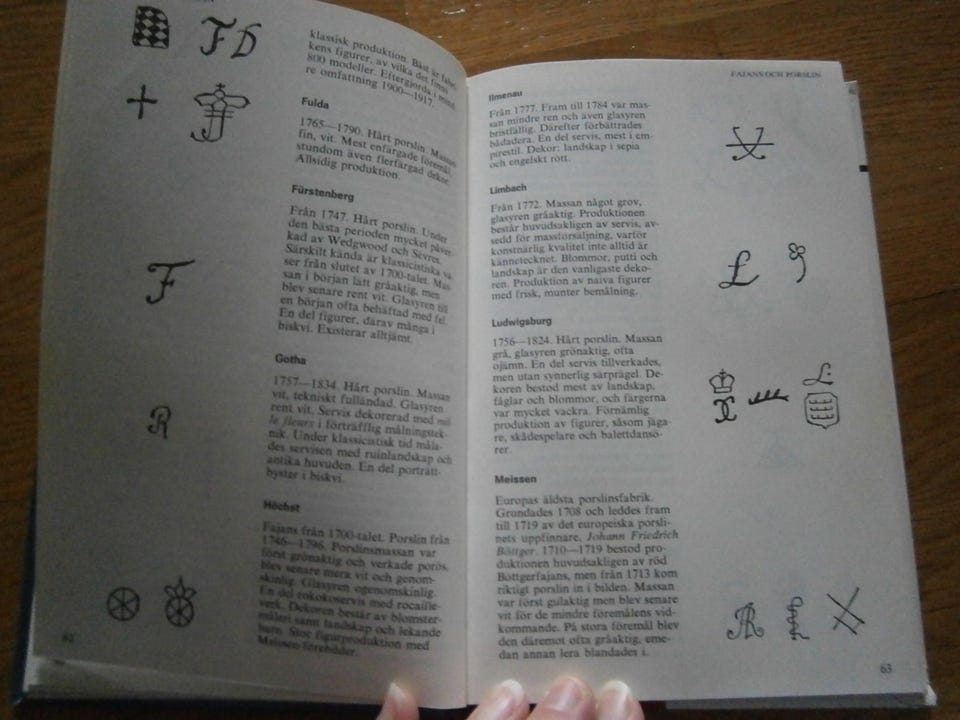 klassisk produktion. Bäst är
kens figurer, av vilka det finns
800 modeller. Eftergjorda i
re omfattning 1900—1917.
Fulda
1765—1790. Hårt porslin. Massan
fin, vit. Mest enfärgade föremål,
stundom även flerfärgad dekor.
Allsidig produktion.
Fürstenberg
Från 1747. Hårt porslin. Under
den bästa perioden mycket påver-
kad av Wedgwood och Sèvres.
Särskilt kända är klassicistiska va-
ser från slutet av 1700-talet. Mas-
san i början lätt gråaktig, men
blev senare rent vit. Glasyren till
en början ofta behäftad med fel.
En del figurer, därav många i
biskvi. Existerar alltjämt.
Gotha
1757—1834. Hårt porslin. Massan
vit, tekniskt fulländad. Glasyren
rent vit. Servis dekorerad med mil-
le fleurs i förträfflig målningstek-
nik. Under klassicistisk tid måla-
des servisen med ruinlandskap och
antika huvuden. En del porträtt-
byster i biskvi.
Höchst
Fajans från 1700-talet. Porslin från
1746—1796. Porslinsmassan var
först grönaktig och verkade porös,
blev senare mera vit och genom-
skinlig. Glasyren ogenomskinlig.
En del rokokoservis med rocaille-
verk. Dekoren består av blomster-
måleri samt landskap och lekande
barn. Stor figurproduktion med
Meissen-förebilder.
62
FAJANS OCH PORSLIN
Ilmenau
Från 1777. Fram till 1784 var mas-
san mindre ren och även glasyren
bristfällig. Därefter förbättrades
bådadera. En del servis, mest i em-
pirestil. Dekor: landskap i sepia
och engelskt rött.
Limbach
Från 1772. Massan något grov,
glasyren gråaktig. Produktionen
består huvudsakligen av servis, av-
sedd för massförsäljning, varför
konstnärlig kvalitet inte alltid är
kännetecknet. Blommor, putti och
landskap är den vanligaste deko-
ren. Produktion av naiva figurer
med frisk, munter bemålning.
Ludwigsburg
1756—1824. Hårt porslin. Massan
grå, glasyren grönaktig, ofta
ojämn. En del servis tillverkades,
men utan synnerlig särprägel. De-
koren bestod mest av landskap,
fåglar och blommor, och färgerna
var mycket vackra. Förnämlig
produktion av figurer, såsom jäga-
re, skådespelare och balettdansö-
rer.
Meissen
Europas äldsta porslinsfabrik.
Grundades 1708 och leddes fram
till 1719 av det europeiska porsli-
nets uppfinnare, Johann Friedrich
Böttger. 1710—1719 bestod pro-
duktionen huvudsakligen av röd
Böttgerfajans, men från 1713 kom
riktigt porslin in i bilden. Massan
var först gulaktig men blev senare
vit för de mindre föremålens vid-
kommande. På stora föremål blev
den däremot ofta gråaktig, eme-
dan annan lera blandades i.
63
FD
F
R
L
L
AR